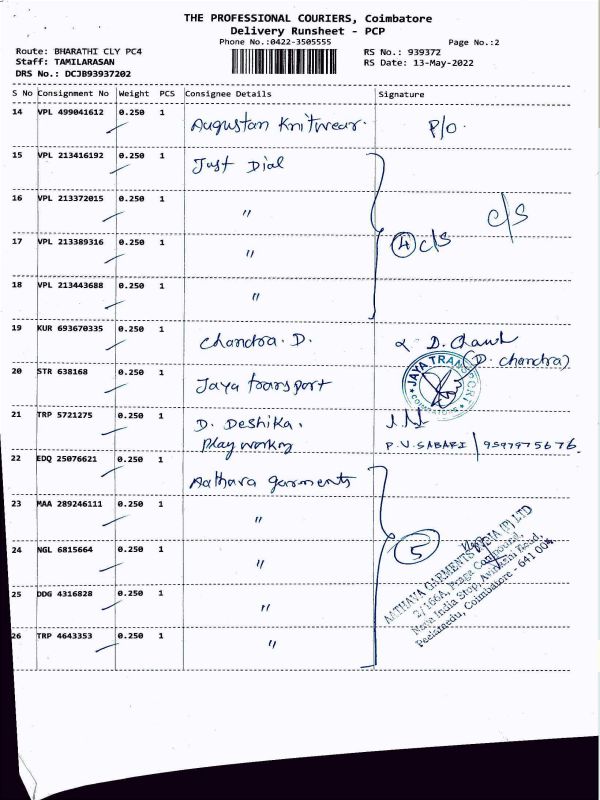 THE PROFESSIONAL COURIERS, Coimbatore
Delivery Runsheet - PCP
Phone No.:0422-3505555
Page No.:2
Route: BHARATHI CLY PC4
RS No.: 939372
Staff: TAMILARASAN
RS Date: 13-May-2022
DRS No.: DCJB93937202
S No Consignment No Weight PCS Consignee Details Signature
14 VPL 499041612 0.250 1 Augustan Knitwear. P/O.
15 VPL 213416192 0.250 1 Just Dial
16 VPL 213372015 0.250 1 〃 c/s
17 VPL 213389316 0.250 1 〃 4 c/s
18 VPL 213443688 0.250 1 〃
19 KUR 693670335 0.250 1 Chandra. D. D. Chand
(D. chandra)
20 STR 638168 0.250 1 Jaya transport JAYA TRANSPORT COIMBATORE
21 TRP 5721275 0.250 1 D. Deshika.
Play working P.V. SABARI / 9597975676.
22 EDQ 25076621 0.250 1 Aathava garments
23 MAA 289246111 0.250 1 〃
24 NGL 6815664 0.250 1 〃 5
25 DDG 4316828 0.250 1 〃
26 TRP 4643353 0.250 1 〃
AATHAVA GARMENTS INDIA (P) LTD
2/166A, Praga Compound,
Nava India Stop, Avinashi Road,
Peelamedu, Coimbatore - 641 004